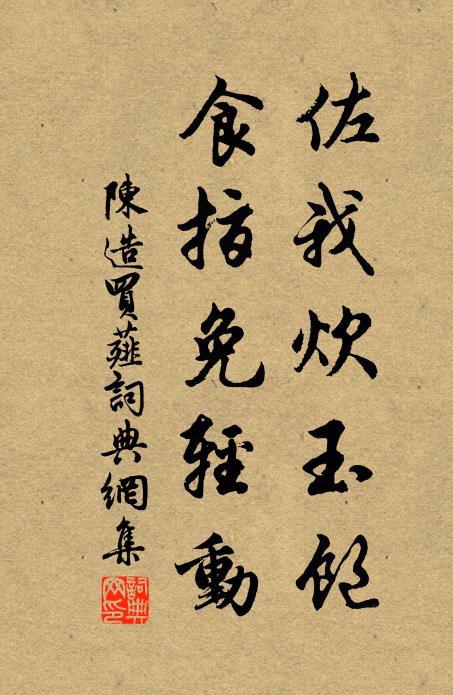 佐我炊玉飽
食指免輕動
陳造買薤詞典網集
詞典
网印